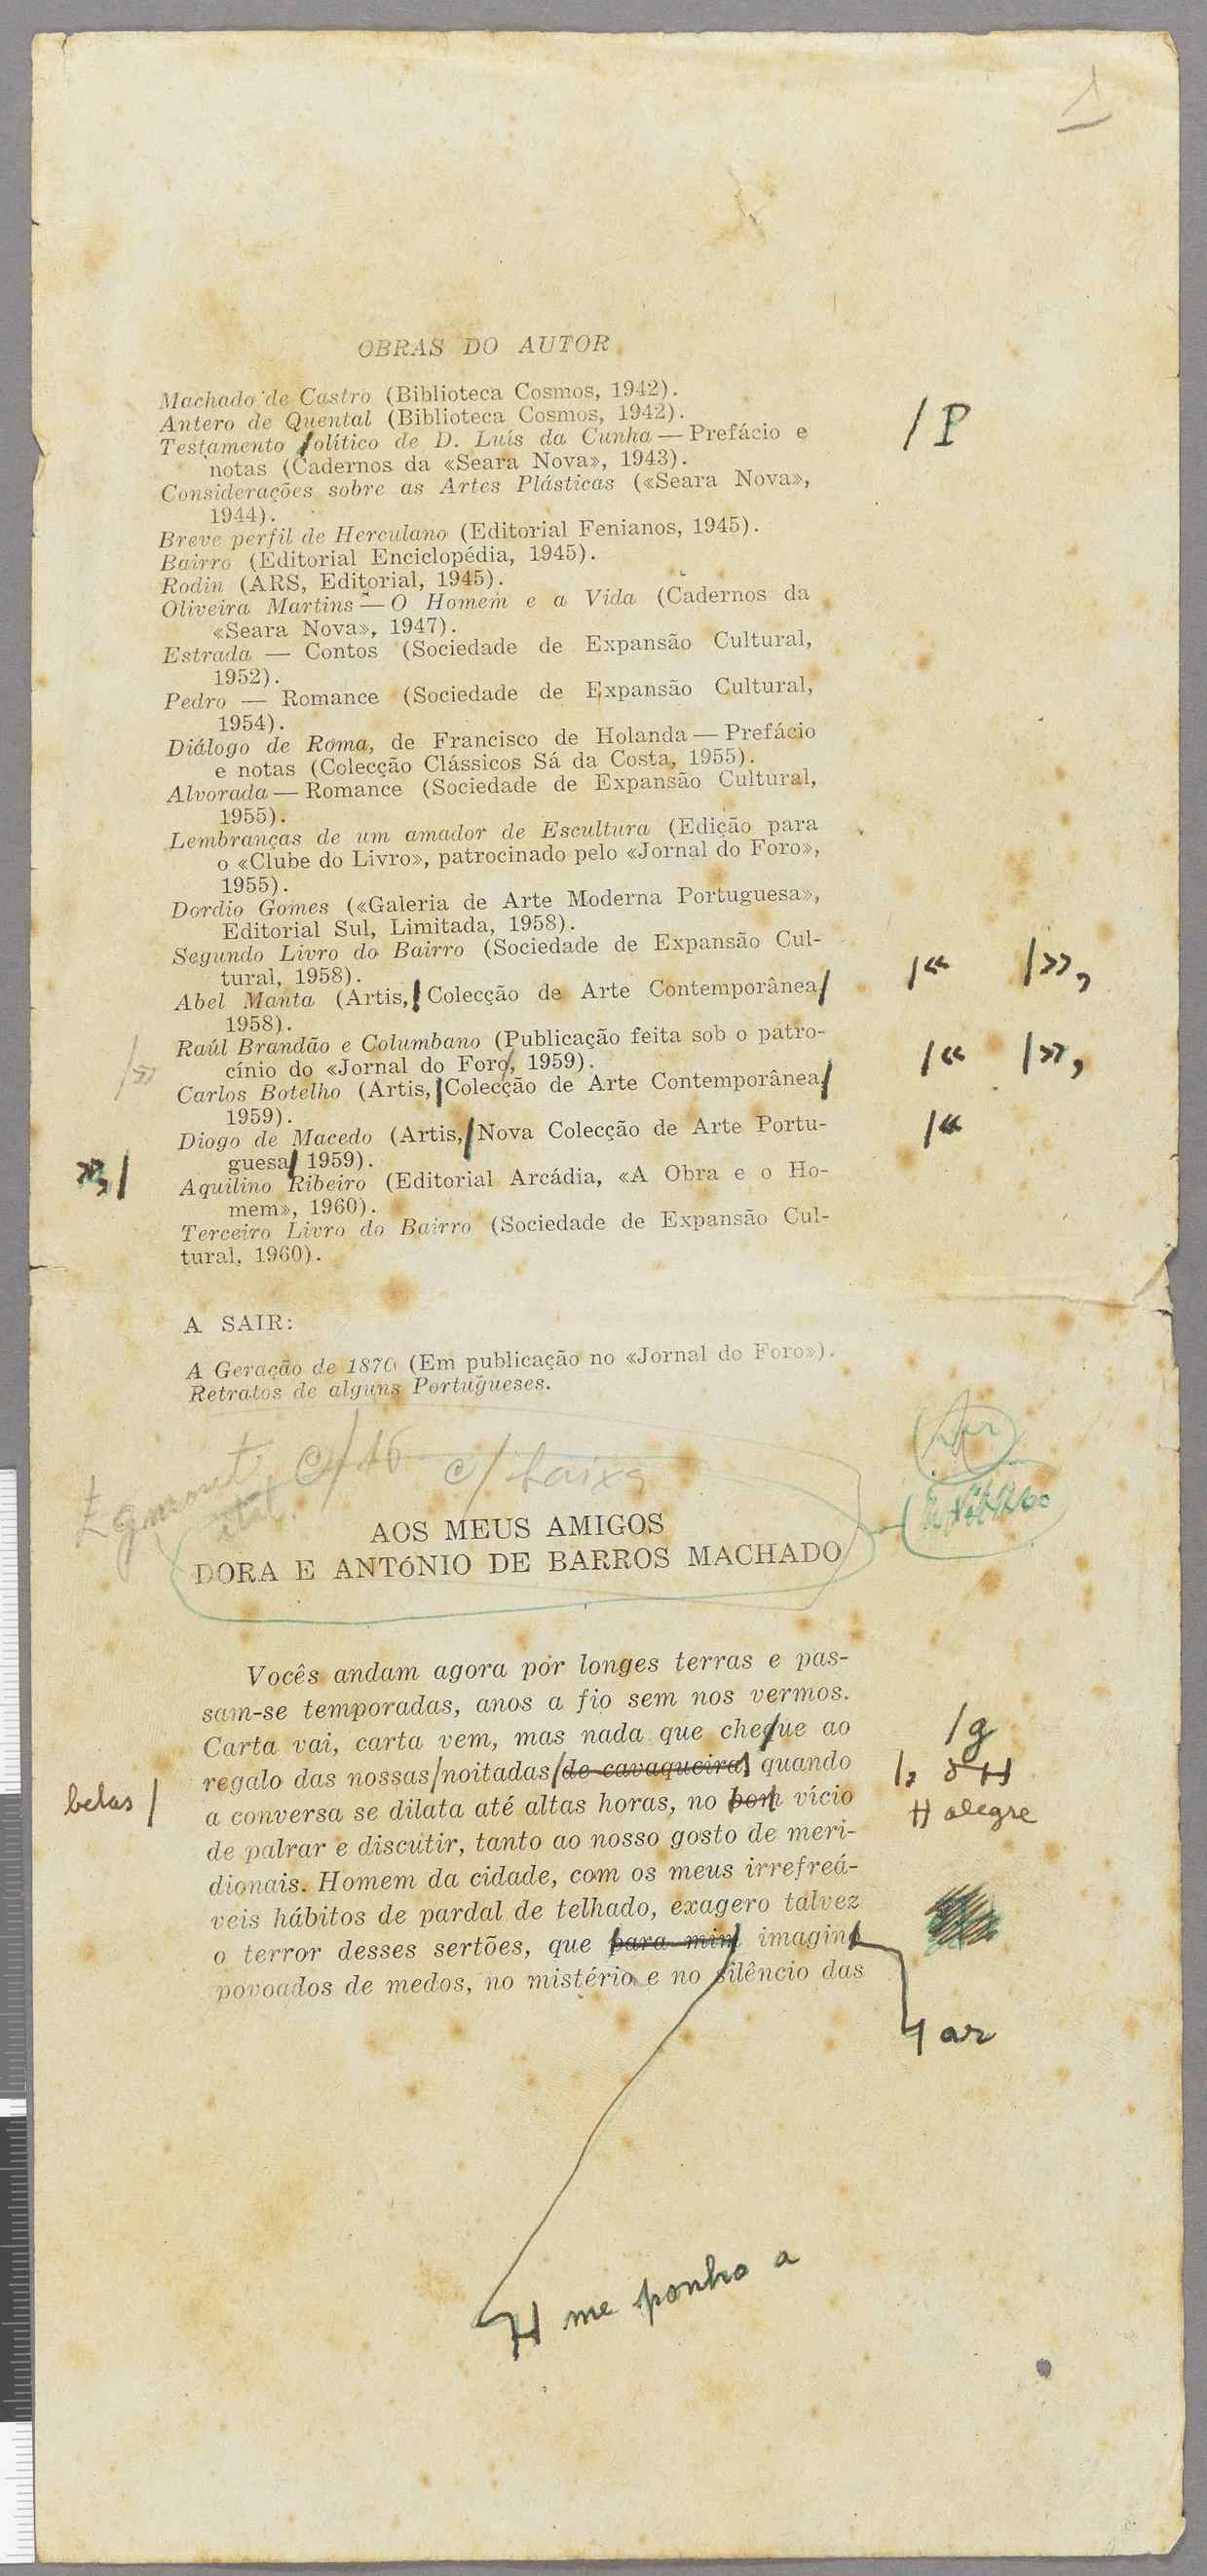 1
OBRAS DO AUTOR
Machado de Castro (Biblioteca Cosmos, 1942).
Antero de Quental (Biblioteca Cosmos, 1942).
Testamento olítico de D. Luís da Cunha — Prefácio e
/ P
notas (Cadernos da «Seara Nova», 1943).
Considerações sobre as Artes Plásticas («Seara Nova»,
1944).
Breve perfil de Herculano (Editorial Fenianos, 1945).
Bairro (Editorial Enciclopédia, 1945).
Rodin (ARS, Editorial, 1945).
Oliveira Martins — O Homem e a Vida (Cadernos da
«Seara Nova», 1947).
Estrada — Contos (Sociedade de Expansão Cultural,
1952).
Pedro — Romance (Sociedade de Expansão Cultural,
1954).
Diálogo de Roma, de Francisco de Holanda — Prefácio
e notas (Colecção Clássicos Sá da Costa, 1955).
Alvorada — Romance (Sociedade de Expansão Cultural,
1955).
Lembranças de um amador de Escultura (Edição para
o «Clube do Livro», patrocinado pelo «Jornal do Foro»,
1955).
Dordio Gomes («Galeria de Arte Moderna Portuguesa»,
Editorial Sul, Limitada, 1958).
Segundo Livro do Bairro (Sociedade de Expansão Cul-
tural, 1958).
/« /»,
Abel Manta (Artis, Colecção de Arte Contemporânea
1958).
Raúl Brandão e Columbano (Publicação feita sob o patro-
/»
cínio do «Jornal do Foro, 1959).
/« /»,
Carlos Botelho (Artis, Colecção de Arte Contemporânea
1959).
Diogo de Macedo (Artis, Nova Colecção de Arte Portu-
/«
», /
guesa 1959).
Aquilino Ribeiro (Editorial Arcádia, «A Obra e o Ho-
mem», 1960).
Terceiro Livro do Bairro (Sociedade de Expansão Cul-
tural, 1960).
A SAIR:
A Geração de 1870 (Em publicação no «Jornal do Foro»).
Retratos de alguns Portugueses.
c/ 16 c/ baixa
AOS MEUS AMIGOS
DORA E ANTÓNIO DE BARROS MACHADO
Vocês andam agora por longes terras e pas-
sam-se temporadas, anos a fio sem nos vermos.
Carta vai, carta vem, mas nada que che ue ao
/ g
regalo das nossas/noitadas/de cavaqueira quando
belas /
a conversa se dilata até altas horas, no bom vício
H alegre
de palrar e discutir, tanto ao nosso gosto de meri-
dionais. Homem da cidade, com os meus irrefreá-
veis hábitos de pardal de telhado, exagero talvez
o terror desses sertões, que para mim imagino
povoados de medos, no mistério e no silêncio das
H ar
H me ponho a